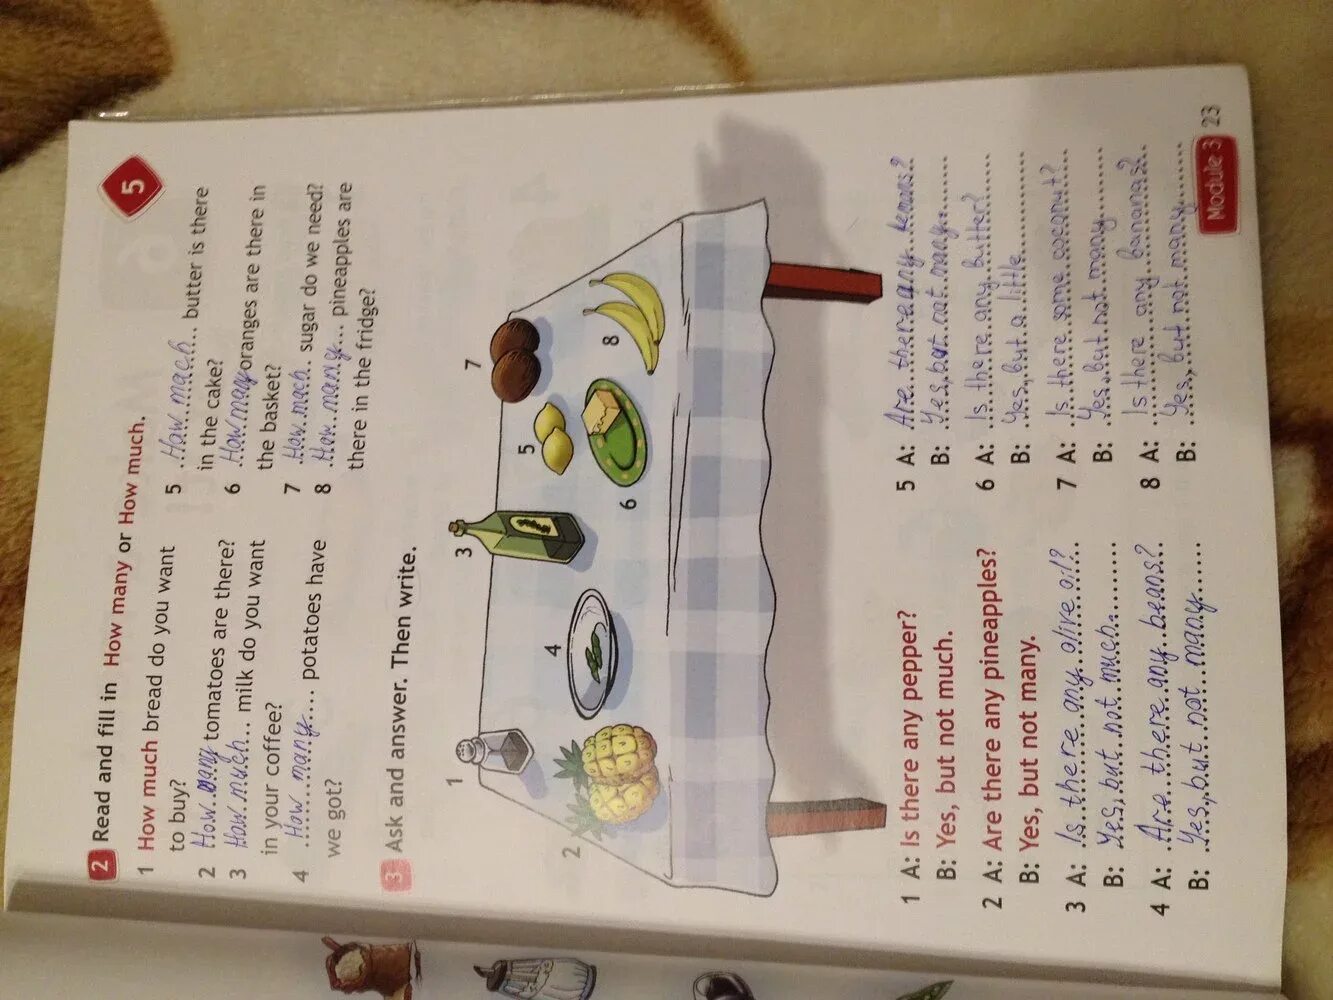 5
2 Read and fill in How many or How much.
1 How much bread do you want
to buy?
2 How many tomatoes are there?
3 How much milk do you want
in your coffee?
4 How many potatoes have
we got?
5 How mach butter is there
in the cake?
6 How many oranges are there in
the basket?
7 How mach sugar do we need?
8 How many pineapples are
there in the fridge?
3 Ask and answer. Then write.
1
2
3
4
5
6
7
8
1 A: Is there any pepper?
B: Yes, but not much.
2 A: Are there any pineapples?
B: Yes, but not many.
3 A: Is there any olive oil?
B: Yes, but not much.
4 A: Are there any beans?
B: Yes, but not many
5 A: Are there any lemons?
B: Yes, but not many.
6 A: Is there any butter?
B: Yes, but a little
7 A: Is there some coconut?
B: Yes, but not many
8 A: Is there any bananas?
B: Yes, but not many
Module 3 23